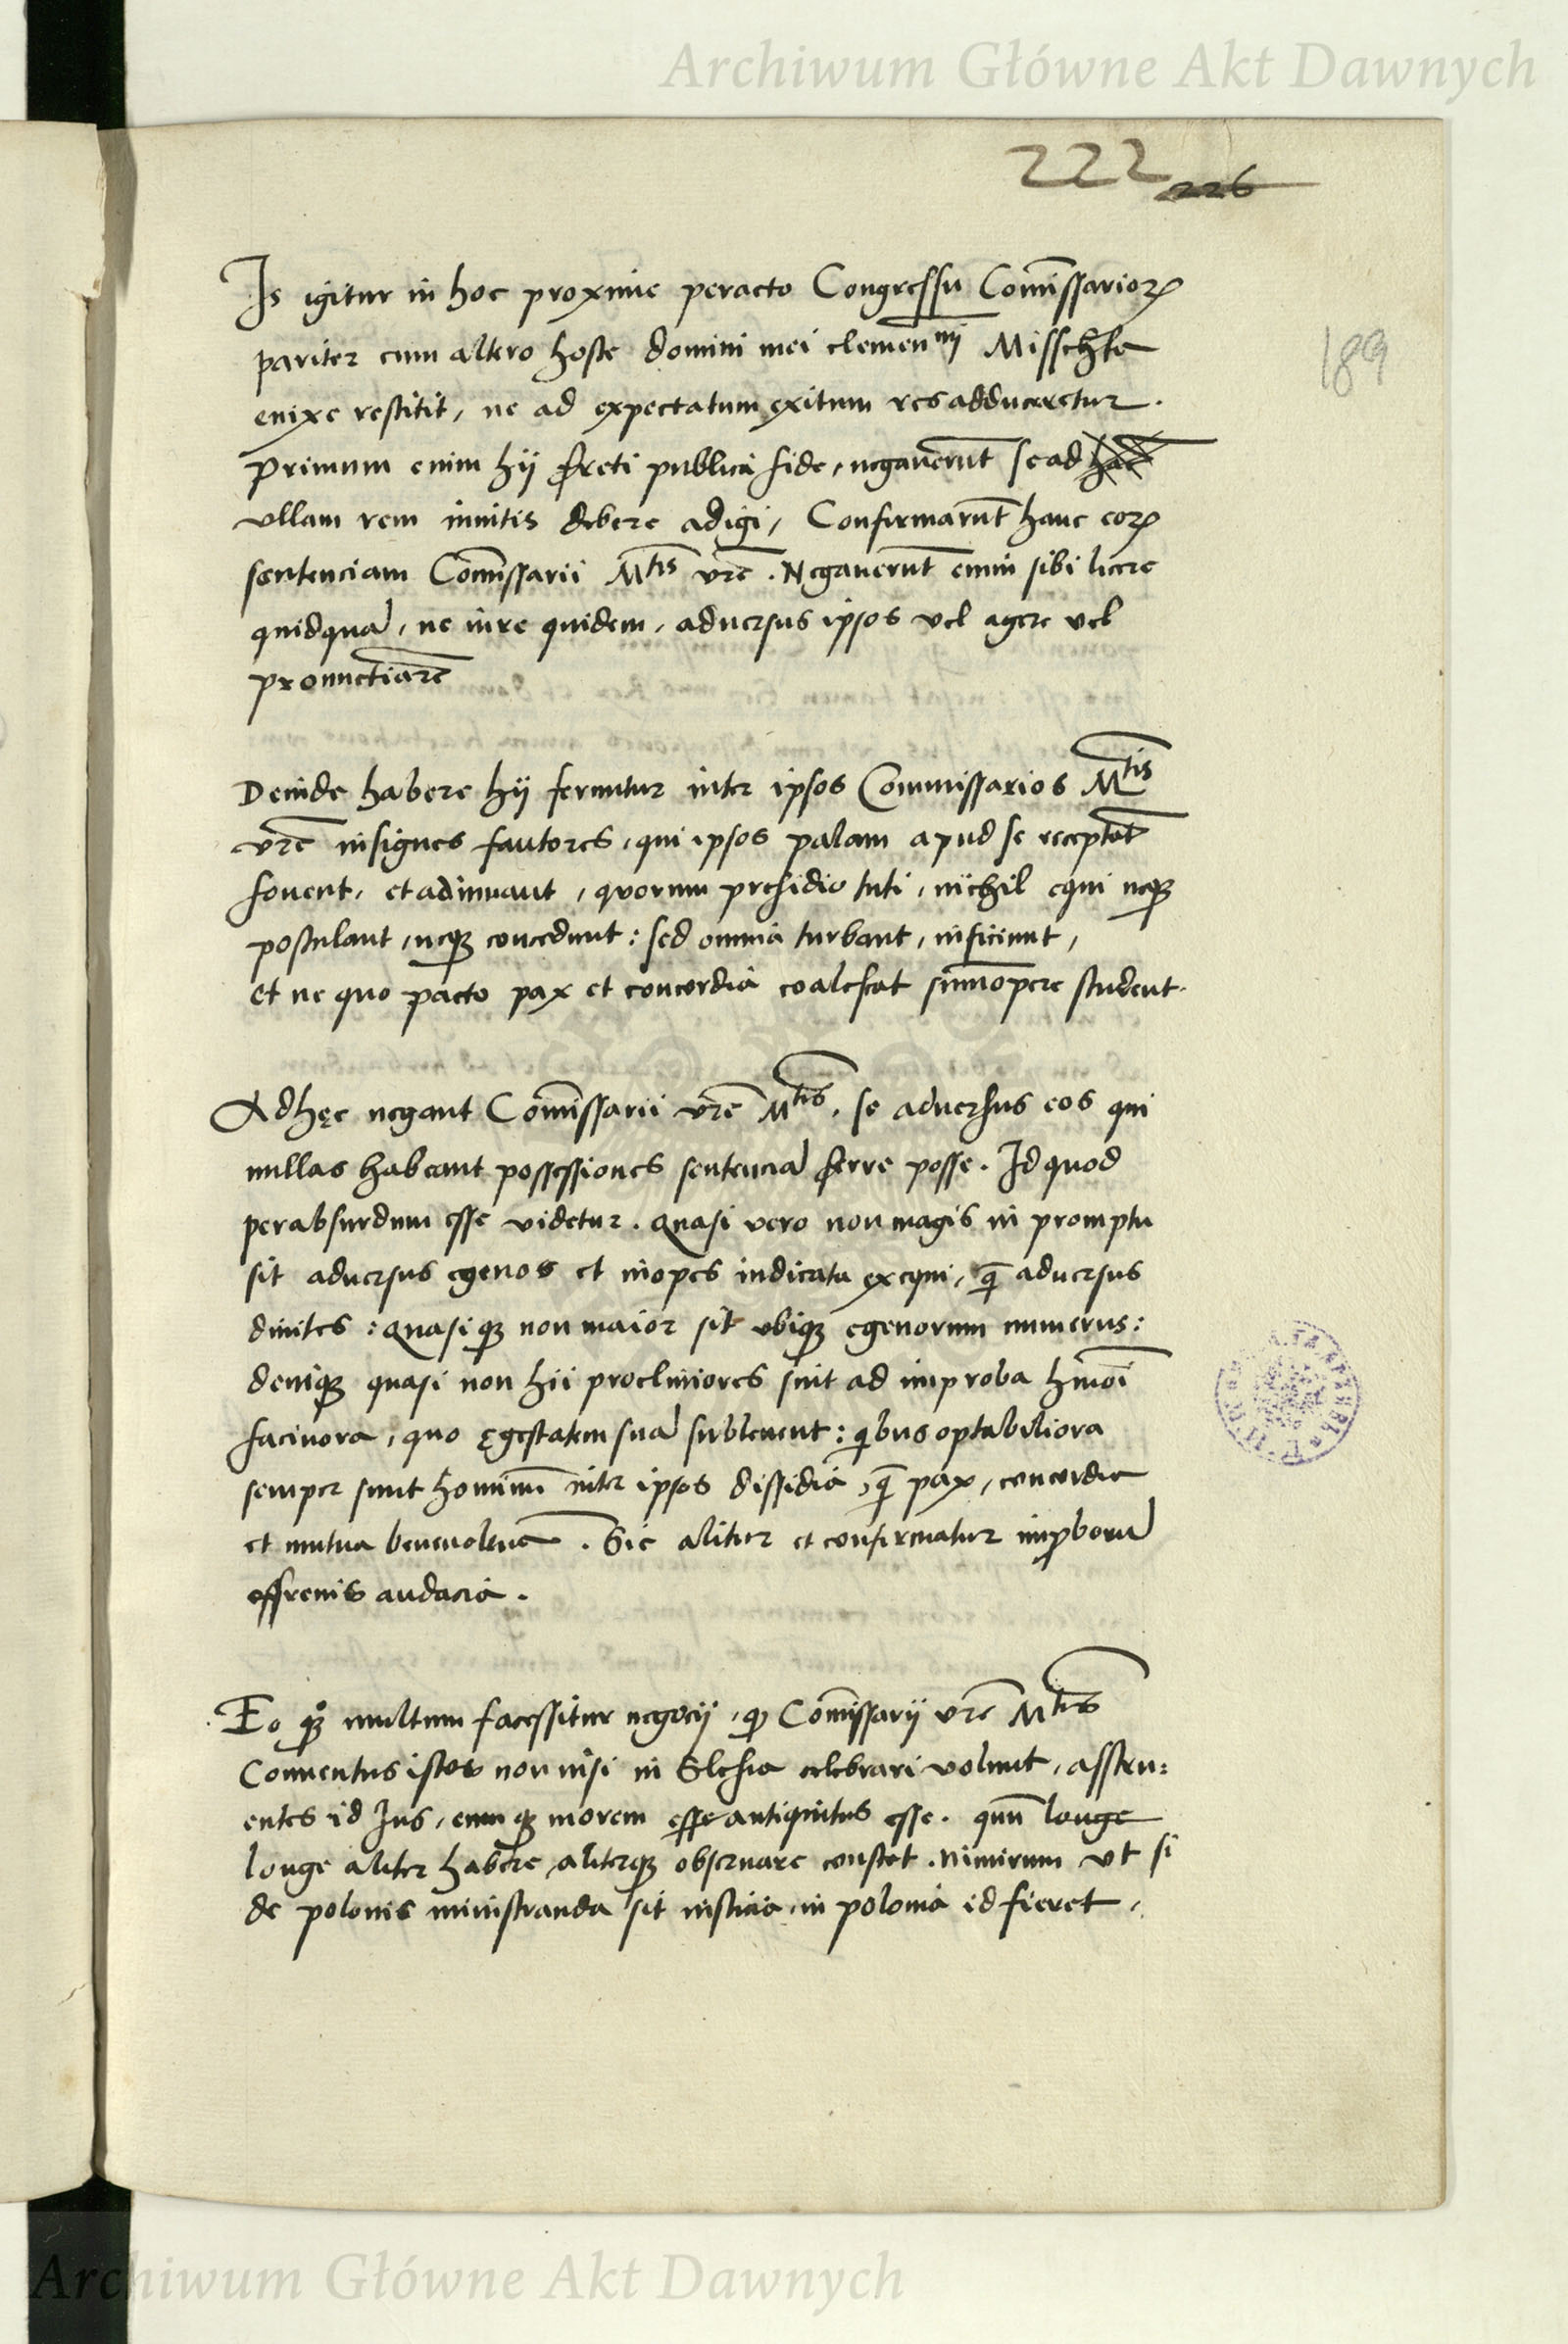 Archiwum Główne Akt Dawnych
222 226
189
Is igitur in hoc proxime peracto Congressu Com̄issarioꝝ
pariter cum altero hoste domini mei clemen̄mi Misschke
enixe restitit, ne ad expectatum exitum res adduceretur.
Primum enim hij freti publica fide, negauerūt se ad hac
ullam rem inuitis debere adigi, Confirmarūt hanc eoꝝ
sentenciam Com̄issarii Mtis vrē. Negauerūt enim sibi licere
quidquā, ne iure quidem, aduersus ipsos vel agere vel
pronunctiarē
Deinde habere hij feruntur inter ipsos Commissarios Mtis
vrē insignes fautores, qui ipsos palam apud se receptāt
fouent, et adiuuant, quorum presidio tuti, nichil equi neqꝫ
postulant, neqꝫ concedunt: sed omnia turbant, inficiunt,
et ne quo pacto pax et concordia coalescat sum̄opere student.
Ad hęc negant Com̄issarii vrē Mtis, se aduersus eos qui
nullas habeant possessiones sentenciā ferre posse. Id quod
perabsurdum esse videtur. Quasi vero non magis in promptu
sit aduersus egenos et inopes iudicata exequi, q̄ aduersus
diuites: Quasi qꝫ non maior sit ubiqꝫ egenorum numerus:
deniqꝫ quasi non hii procliuiores sint ad improba hmōi
facinora, quo ęgestatem suā subleuent: qibus optabiliora
semper sunt hominū inter ipsos dissidia, q̄ pax, concordia
et mutua beneuolenc̄a. Sic alitur et confirmatur imꝓborū
effrenis audacia.
Eo qꝫ multum facessitur negocij, ꝙ Com̄issarij vrē Mtis
Conuentus istos non nisi in Slesia celebrari volunt, asseru:
entes id Ius, eum qꝫ morem esse antiquitus esse. quū longe
longe aliter habere, aliterqꝫ obseruare constet. Nimirum ut si
de polonis ministranda sit iusticia, in polonia id fieret,
Archiwum Główne Akt Dawnych